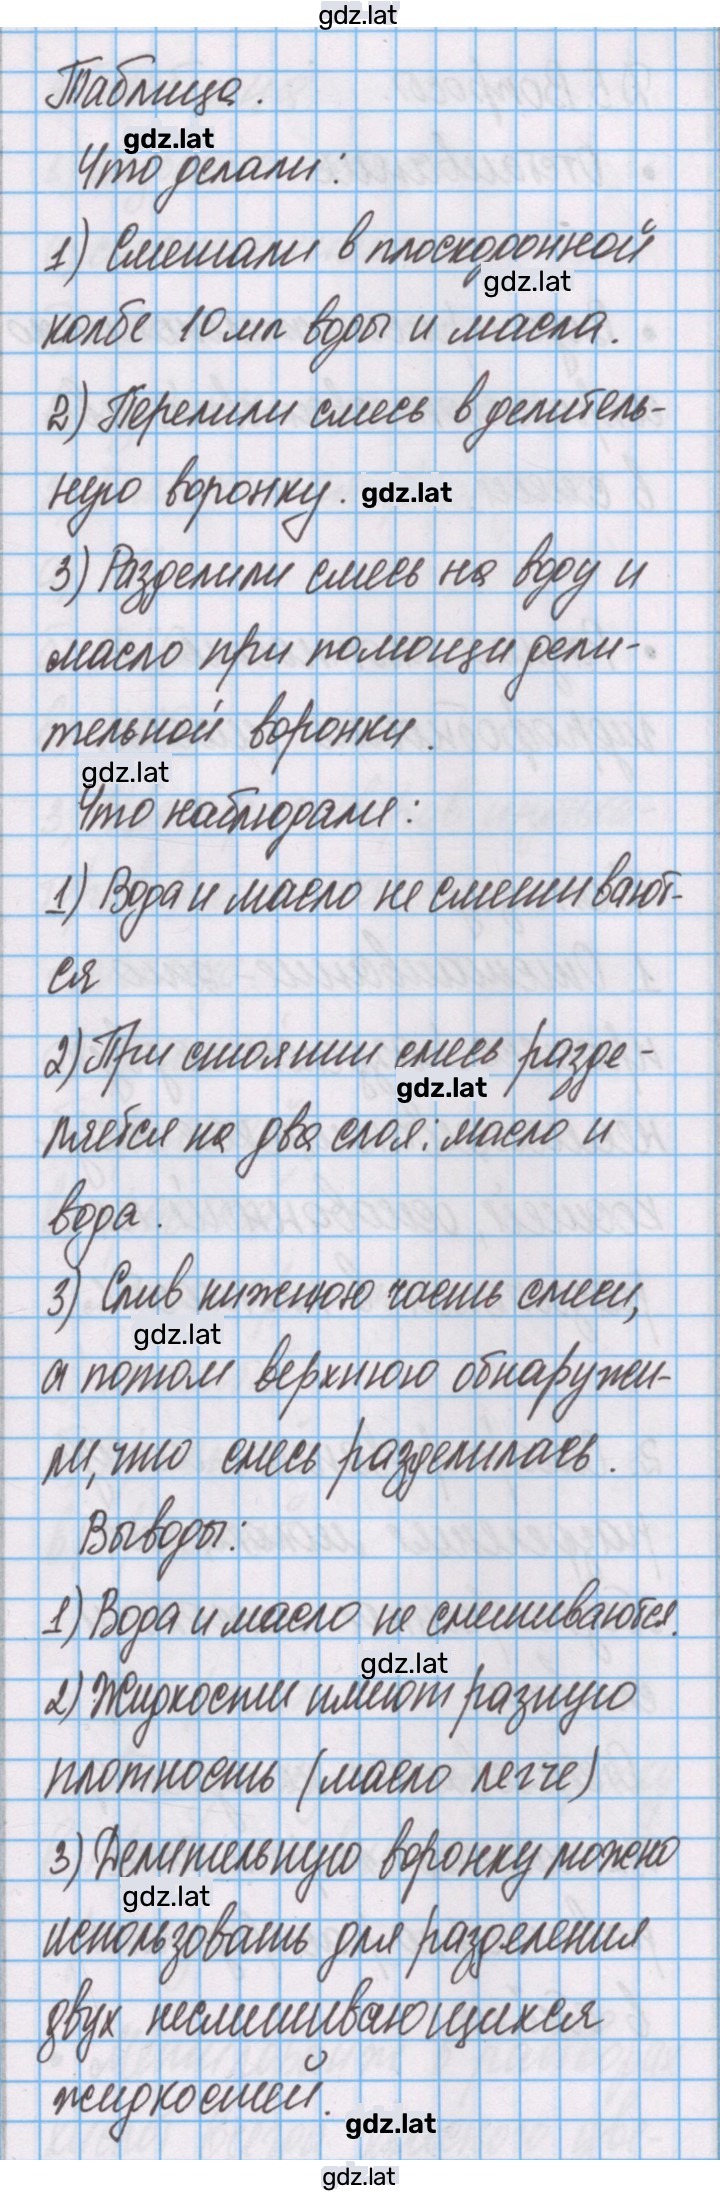 gdz.lat
Таблица.
gdz.lat
Что делали:
1) Смешали в плоскодонной
gdz.lat
колбе 10 мл воды и масла.
2) Перелили смесь в делитель-
ную воронку. gdz.lat
3) Разделили смесь на воду и
масло при помощи дели-
тельной воронки.
gdz.lat
Что наблюдали:
1) Вода и масло не смешивают-
ся
2) При стоянии смесь разде-
gdz.lat
ляется на два слоя: масло и
вода.
3) Слив нижнюю часть смеси,
gdz.lat
а потом верхнюю обнаружи-
ли, что смесь разделилась.
Выводы:
1) Вода и масло не смешиваются.
gdz.lat
2) Жидкости имеют разную
плотность (масло легче)
3) Делительную воронку можно
gdz.lat
использовать для разделения
двух несмешивающихся
жидкостей.
gdz.lat
gdz.lat